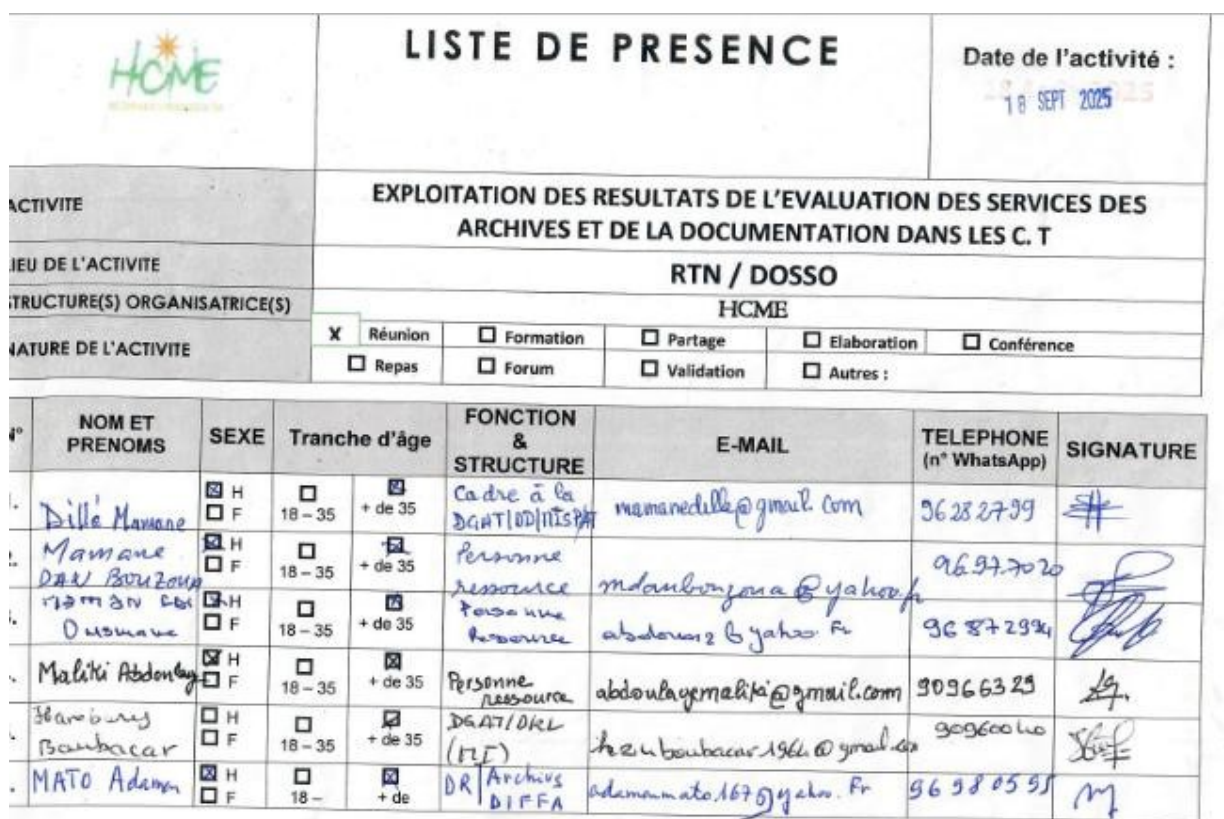 HCME
LISTE DE PRESENCE
Date de l'activité :
18 SEPT 2025
ACTIVITE
EXPLOITATION DES RESULTATS DE L'EVALUATION DES SERVICES DES
ARCHIVES ET DE LA DOCUMENTATION DANS LES C. T
IEU DE L'ACTIVITE
RTN / DOSSO
TRUCTURE(S) ORGANISATRICE(S)
HCME
NATURE DE L'ACTIVITE
X Réunion ☐ Formation ☐ Partage ☐ Elaboration ☐ Conférence
☐ Repas ☐ Forum ☐ Validation ☐ Autres :
N° NOM ET PRENOMS SEXE Tranche d'âge FONCTION & STRUCTURE E-MAIL TELEPHONE (n° WhatsApp) SIGNATURE
Dillé Mamane ☒ H ☐ F ☐ 18 – 35 ☒ + de 35 Cadre à la DGAT/DD/MISPAT mamanedille@gmail.com 96282799
Mamane DAN BOUZOUA ☒ H ☐ F ☐ 18 – 35 ☒ + de 35 Personne ressource @yahoo.fr 96.97.70 20
Ousmane ☒ H ☐ F ☐ 18 – 35 ☒ + de 35 Personne Ressource yahoo.Fr
Maliki Abdoulaye ☒ H ☐ F ☐ 18 – 35 ☒ + de 35 Personne ressource abdoulayemaliki@gmail.com 90966329
Boubacar ☐ H ☐ F ☐ 18 – 35 ☒ + de 35 DGAT/ 90960040
MATO Adamou ☒ H ☐ F ☐ 18 – ☒ + de DR Archivs DIFFA 96980595